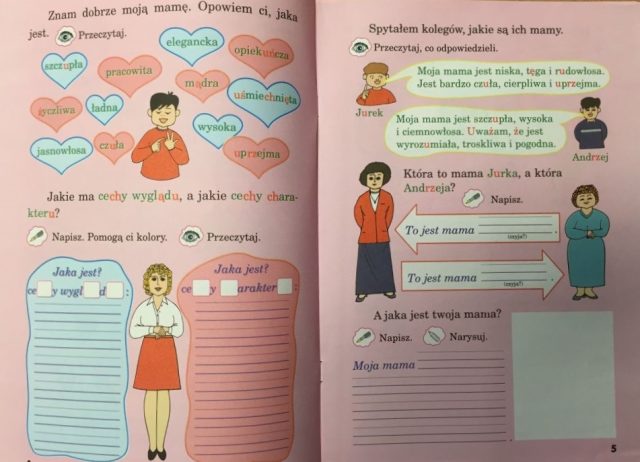 Znam dobrze moją mamę. Opowiem ci, jaka
jest. Przeczytaj.
elegancka
opiekuńcza
szczupła
pracowita
mądra
uśmiechnięta
życzliwa
ładna
wysoka
jasnowłosa
czuła
uprzejma
Jakie ma cechy wyglądu, a jakie cechy chara-
kteru?
Napisz. Pomogą ci kolory. Przeczytaj.
Jaka jest?
ce y wygl d :
Jaka jest?
ce y arakter :
Spytałem kolegów, jakie są ich mamy.
Przeczytaj, co odpowiedzieli.
Moja mama jest niska, tęga i rudowłosa.
Jest bardzo czuła, cierpliwa i uprzejma.
Jurek
Moja mama jest szczupła, wysoka
i ciemnowłosa. Uważam, że jest
wyrozumiała, troskliwa i pogodna.
Andrzej
Która to mama Jurka, a która
Andrzeja?
Napisz.
To jest mama .
(czyja?)
To jest mama .
(czyja?)
A jaka jest twoja mama?
Napisz. Narysuj.
Moja mama
5